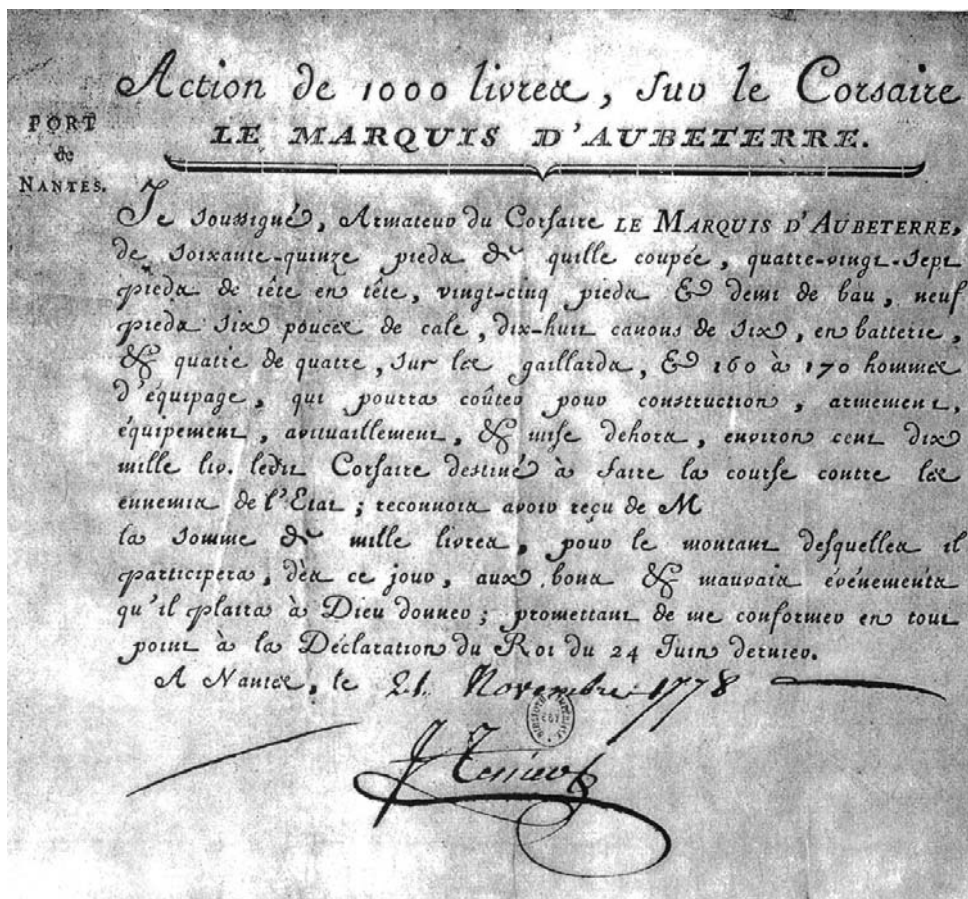 Action de 1000 livres, sur le Corsaire
LE MARQUIS D'AUBETERRE.
PORT
de
NANTES.
Je soussigné, Armateur du Corsaire LE MARQUIS D'AUBETERRE,
de soixante-quinze pieds de quille coupée, quatre-vingt-sept
pieds de tête en tête, vingt-cinq pieds & demi de bau, neuf
pieds six pouces de cale, dix-huit canons de six, en batterie,
& quatre de quatre, sur les gaillards, & 160 à 170 hommes
d'équipage, qui pourra coûter pour construction, armement,
équipement, avituaillement, & mise dehors, environ cent dix
mille liv. ledit Corsaire destiné à faire la course contre les
ennemis de l'Etat ; reconnois avoir reçu de M
la somme de mille livres, pour le montant desquelles il
participera, dès ce jour, aux bons & mauvais événements
qu'il plaira à Dieu donner ; promettant de me conformer en tout
point à la Déclaration du Roi du 24 Juin dernier.
A Nantes, le 21. Novembre 1778